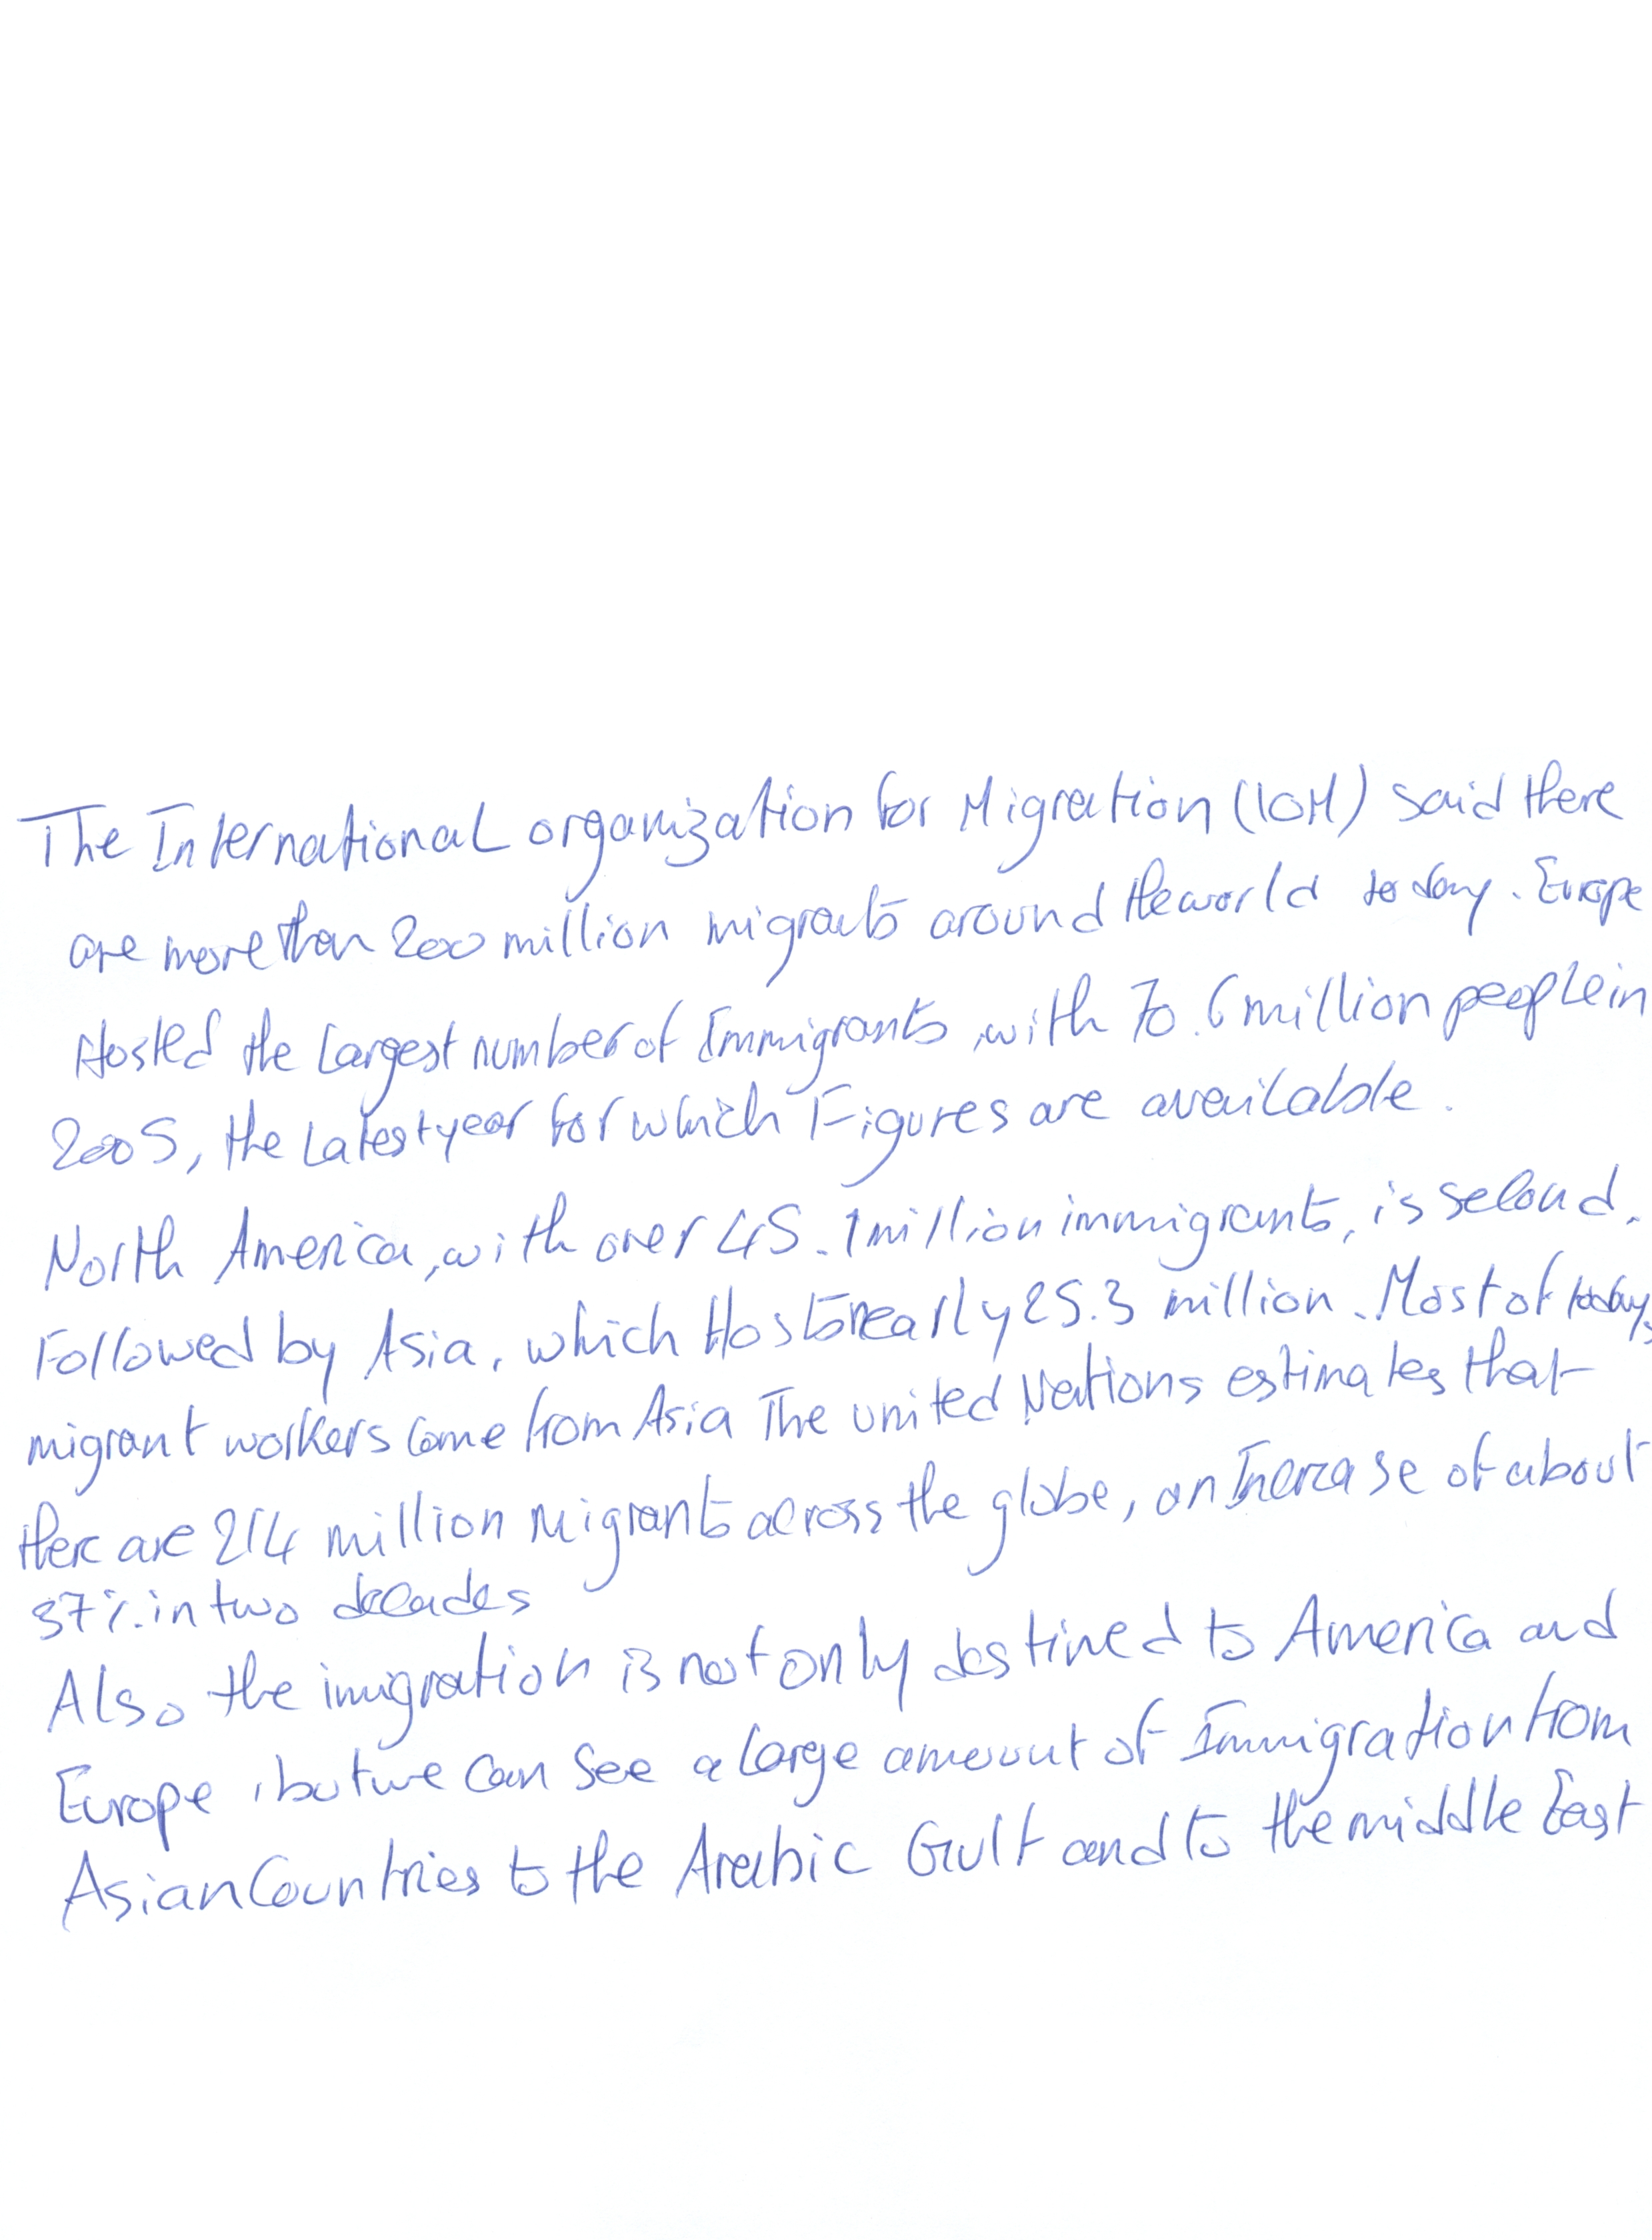 The International organization for Migration (IOM) said there
are more than 200 million migrants around the world today. Europe
Hosted the largest number of Immigrants, with 70.6 million people in
2005, the latest year for which Figures are available.
North America, with over 45.1 million immigrants, is second.
Followed by Asia, which Hosts nearly 25.3 million. Most of todays
migrant workers come from Asia The united Nations estimates that
there are 214 million migrants across the globe, an Increase of about
37% in two decades
Also the imigration is not only destined to America and
Europe, but we can see a large amount of Immigration from
Asian Countries to the Arabic Gulf and to the middle East